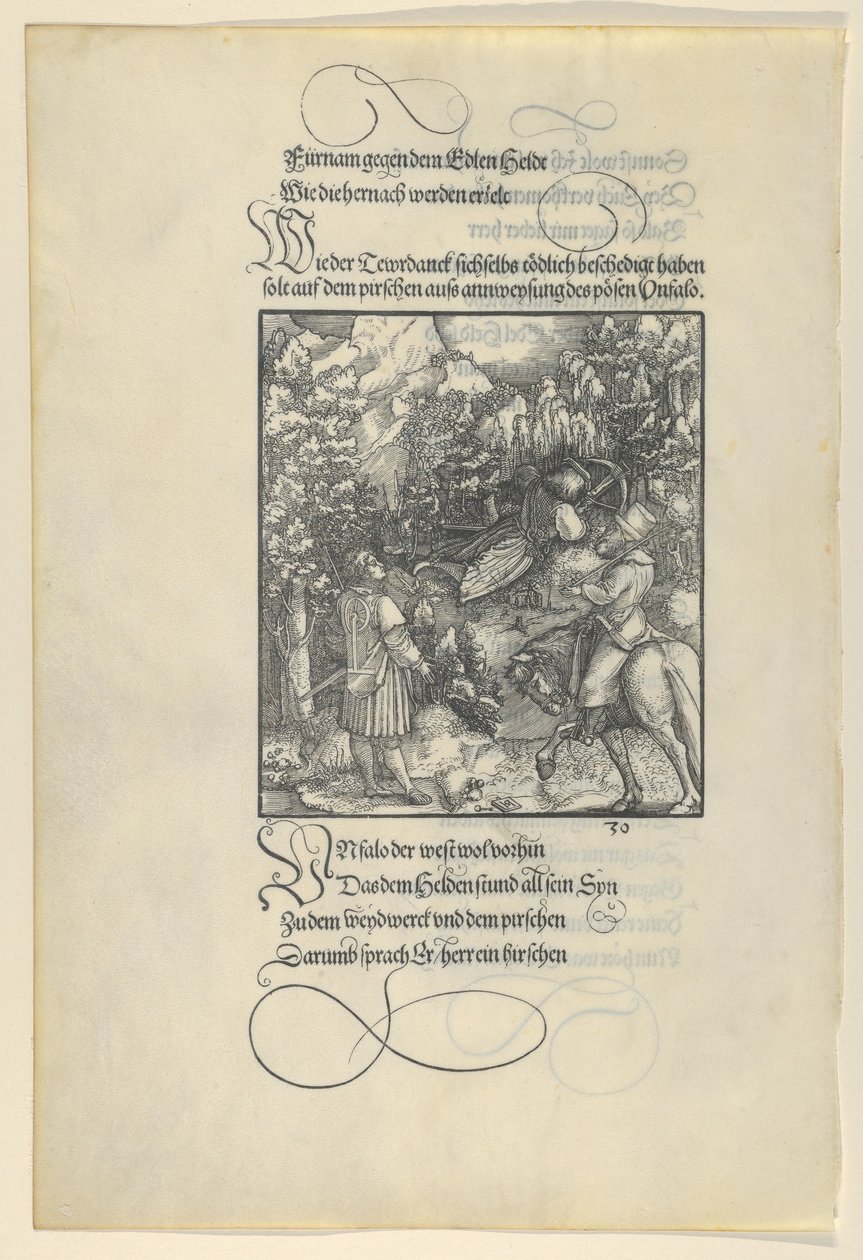 Fürnam gegen dem Edlen Heldt
Wie die hernach werden erzelt
Wie der Tewrdanck sich selbs tödlich beschedigt haben
solt auf dem pirschen auss annweysung des pösen Unfalo.
30
UNfalo der west wol vorhin
Das dem Helden stund all sein Syn
Zu dem weydwerck vnd dem pirschen
Darumb sprach Er/herr ein hirschen